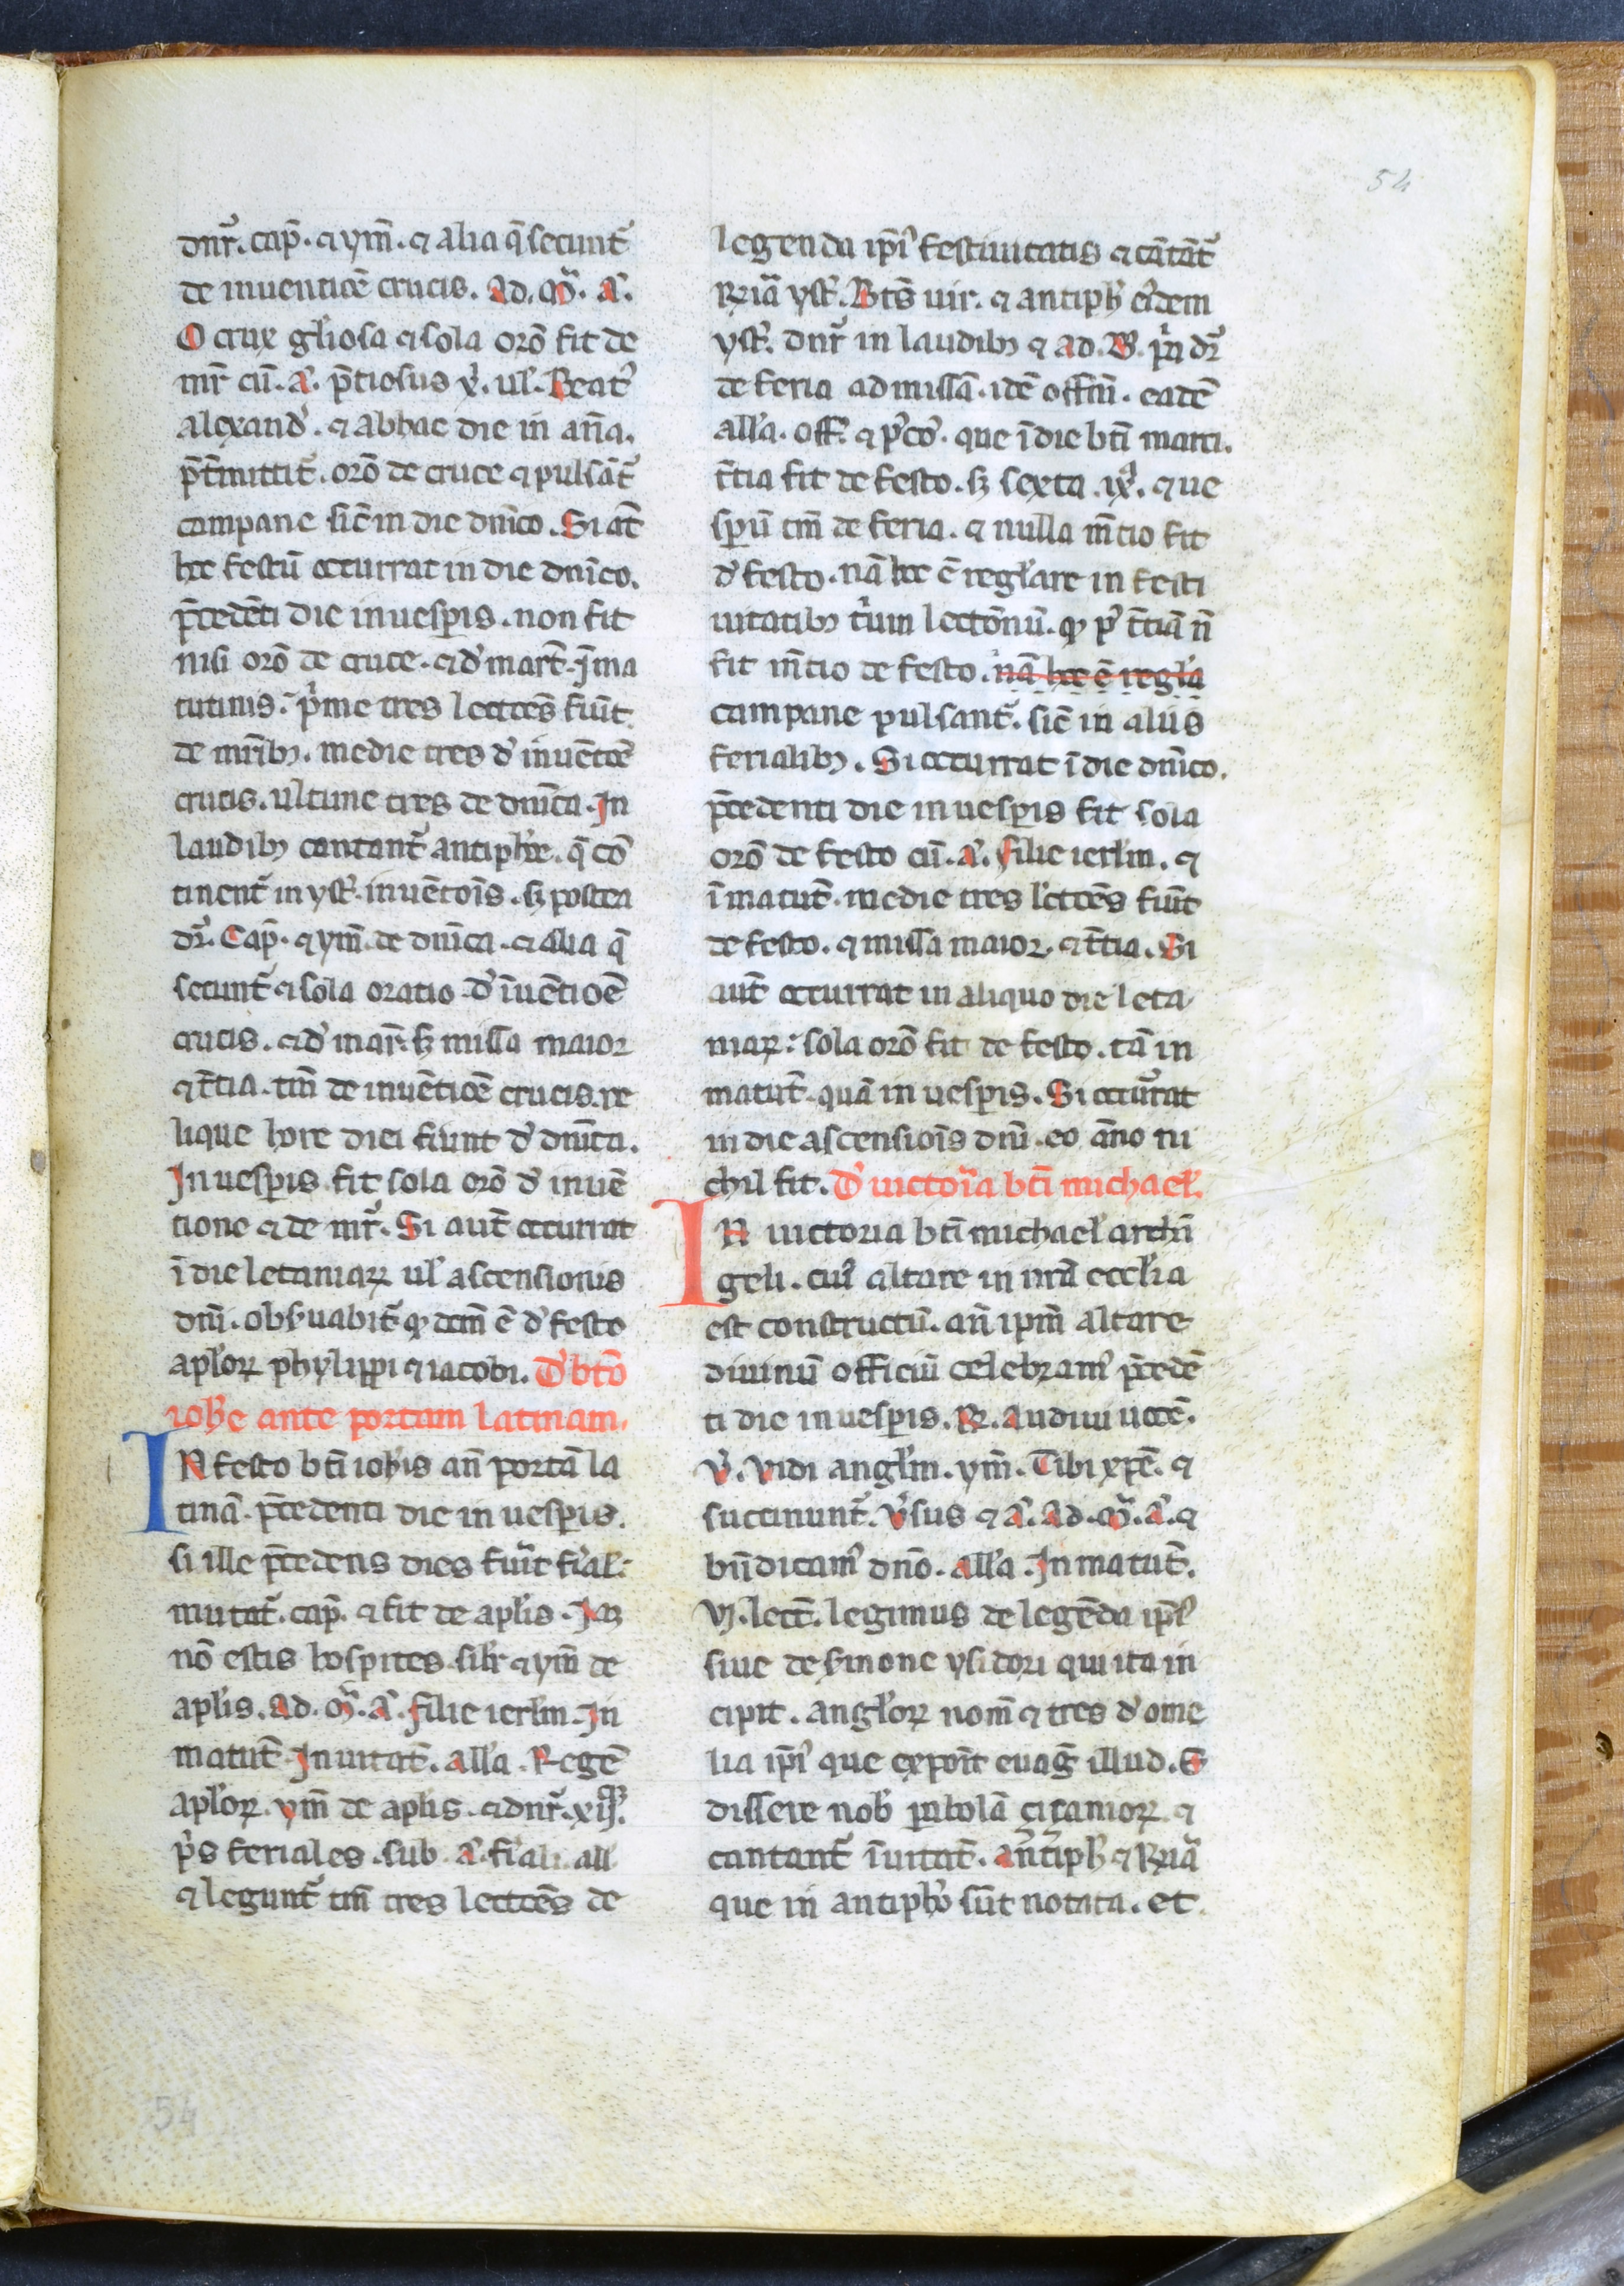 54
dn̄r̃. cap̄. ⁊ ym̄. ⁊ alia q̄ secunt̃
de inuentiōe crucis. Ad. M̃. A᷑.
O crux gl̓iosa ⁊ sola orō fit de
mr̃ cū. A᷑. p̄tiosus x̓. ul̓. Beat᷑
alexand᷑. ⁊ abhac die in an̄a.
p̄t̄mittit̃. orō de cruce ⁊ pulsāt̃
campane sic̄ in die dn̄ico. Si at̄
hoc festū occurrat in die dn̄ico.
p̄cedēti die in uesp̄is. non fit
nisi orō de cruce. ⁊ d᷑ mart̄. ī ma
tutinis. p̓me tres lectōes fiūt.
de mr̄ib;. medie tres d᷑ inuētōe
crucis. ultime tres de dn̄ica. In
laudib; cantant̃ antiph᷑e. q̄ cō
tinent̃ in yst᷑. inuētōis. s; postea
dr̃. Cap̄. ⁊ ym̄. de dn̄ica. ⁊ alia q̄
secunt̃ ⁊ sola oratio d᷑ īuētioē
crucis. ⁊ d᷑ mar̄. s; missa maior
⁊ t̄tia. tm̄ de inuētiōe crucis. re
lique hore diei fiunt d᷑ dn̄ica.
In uesp̄is fit sola orō d᷑ inuē
tione ⁊ de mr̃. Si aut̄ occurrat
ī die letaniaꝝ ul̓ ascensionis
dn̄i. obs̓uabit̃ q̢ dc̄m ē d᷑ festo
apl̓oꝝ phylippi ⁊ iacobi. D᷑ bt̄o
ioh̓e ante portam latinam.
IN festo bt̄i ioh̓is an̄ portā la
tinā. p̄cedenti die in uesp̄is.
si ille p̄cedens dies fu̓it f̓ial̓.
mutat̃. cap̄. ⁊ fit de apl̓is. Iā
nō estis hospites. sil̓r ⁊ ym̄ de
apl̓is. Ad. M̃. A᷑. filie ierl̓m. In
matut̄. Inuitat̄. all̓a. Regē
apl̓oꝝ. ym̄ de apl̓is. ⁊ dn̄r̃. xij.
p̓s feriales. sub. A᷑. f̓iali. all
⁊ legunt̃ tm̄ tres lectōes de
legenda ip̄i᷑ festiuitatis ⁊ cātāt̃
R̷ria yst᷑. Bt̄s uir. ⁊ antiph᷑ e᷑dem
yst᷑. dn̄r̃ in laudib; ⁊ ad. B. p̓ci dr̃
de feria ad missā. idē offm̄. eadē
all̓a. off̄. ⁊ p᷑cō. que ī die bt̄i marci.
t̄tia fit de festo. s; sexta. ix̃. ⁊ ue
sp̄ū tm̄ de feria. ⁊ nulla m̄tio fit
d᷑ festo. nā hoc ē regl̓are in festi
uitatib; t̓um lectōnū. q̢ p᷑ t̄tiā n̄
fit m̄tio de festo. nā hoc ē regl̓a
campane pulsant̃. sic̄ in aliis
ferialib;. Si occurrat ī die dn̄ico.
p̄cedenti die in uesp̄is fit sola
orō de festo cū. A᷑. filie ierl̓m. ⁊
ī matut̄. medie tres lectōes fiūt
de festo. ⁊ missa maior. ⁊ t̄tia. Si
aut̄ occurrat in aliquo die leta
niaꝝ. sola orō fit de festo. tā in
matut̄. quā in uesp̄is. Si occur̃at
in die ascensiōis dn̄i. eo āno ni
chil fit. D᷑ uictoria bt̄i michael̓.
IN uictoria bt̄i michael̓ archā
geli. cui᷑ altare in nr̄a eccl̓ia
est constructū. an̄ ip̄m altare
diuinū officiū celebram᷑ p̄cedē
ti die in uesp̄is. R̷. Audiui uocē.
V̓. Vidi angl̓m. ym̄. Tibi xp̄e. ⁊
succinunt̃. V̓sus ⁊ A᷑. Ad. M̃. A᷑. ⁊
bn̄dicam᷑ dn̄o. all̓a. In matut̄.
vj. lect̄. legimus de legēda ip̄i᷑
siue de s̓mone ysidori qui ita in
cipit. angl̓oꝝ nom̄ ⁊ tres d᷑ ome
lia ip̄i᷑ que exponit euāg illud. S
dissere nob̓ p̱abolā çiçanioꝝ. ⁊
cantant̃ īuitat̄. antiph᷑ ⁊ R̷ria
que in antiph᷑o sūt notata. et
54